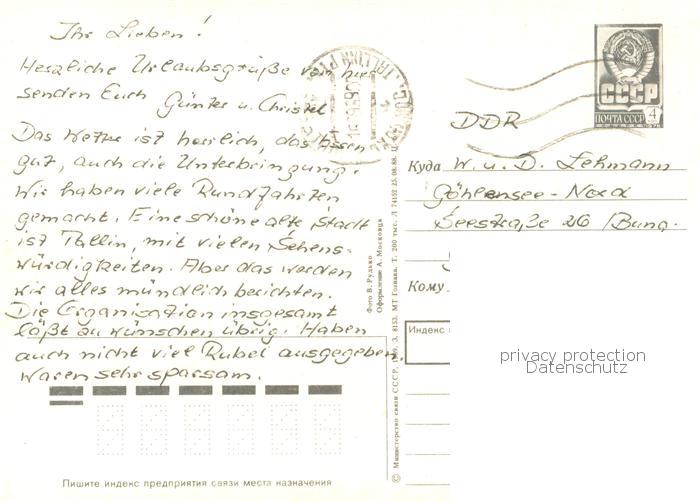 Ihr Lieben!
Herzliche Urlaubsgrüße von hier
senden Euch Günter u. Christel.
Das Wetter ist herrlich, das Essen
gut, auch die Unterbringung.
Wir haben viele Rundfahrten
gemacht. Eine schöne alte Stadt
ist Tallin, mit vielen Sehens-
würdigkeiten. Aber das werden
wir alles mündlich berichten.
Die Organisation insgesamt
läßt zu wünschen übrig. Haben
auch nicht viel Rubel ausgegeben.
Waren sehr sparsam.
Пишите индекс предприятия связи места назначения
Фото В. Рудько
Оформление А. Московца
© Министерство связи СССР, З. 8153. МТ Гознака. Т. 200 тыс. Л 74152 25.08.88.
СССР
ПОЧТА СССР
4
DDR
Куда W. u. D. Lehmann
Seestraße 26 /Bung.
Кому
Индекс
privacy protection
Datenschutz